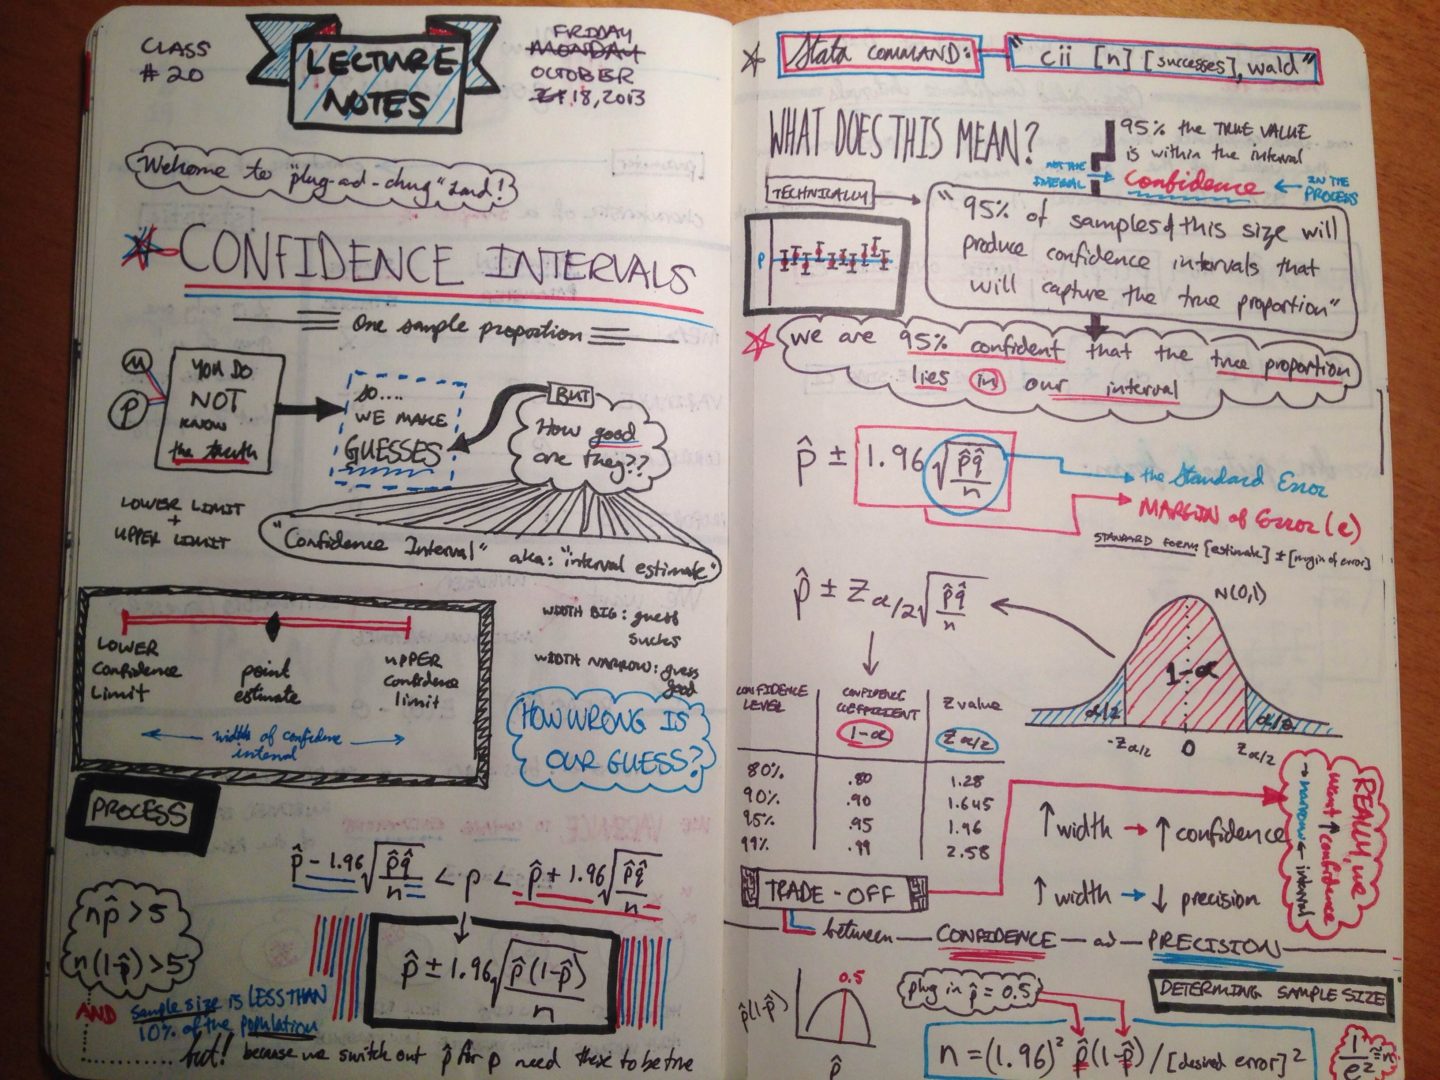 CLASS
# 20
LECTURE
NOTES
FRIDAY
MONDAY
OCTOBER
18, 2013
Welcome to "plug-and-chug" Land!
CONFIDENCE INTERVALS
One sample proportion
μ
p
YOU DO
NOT
KNOW
the truth
so....
WE MAKE
GUESSES
BUT
How good
are they??
LOWER LIMIT
+
UPPER LIMIT
"Confidence Interval" aka: "interval estimate"
LOWER
Confidence
Limit
point
estimate
UPPER
Confidence
limit
width of confidence
interval
WIDTH BIG: guess
sucks
WIDTH NARROW: guess
good
HOW WRONG IS
OUR GUESS?
PROCESS
p̂ - 1.96 √(p̂q̂/n) < p < p̂ + 1.96 √(p̂q̂/n)
np̂ > 5
n(1-p̂) > 5
p̂ ± 1.96 √(p̂(1-p̂)/n)
AND sample size is LESS THAN
10% of the population
but! because we switch out p̂ for p need these to be true
Stata COMMAND: "cii [n] [successes], wald"
WHAT DOES THIS MEAN?
95% the TRUE VALUE
is within the interval
NOT THE
INTERVAL
Confidence
IN THE
PROCESS
TECHNICALLY
"95% of samples of this size will
produce confidence intervals that
will capture the true proportion"
p
we are 95% confident that the true proportion
lies in our interval
p̂ ± 1.96 √(p̂q̂/n)
the Standard Error
MARGIN of Error (e)
STANDARD FORM: [estimate] ± [margin of error]
p̂ ± Zα/2 √(p̂q̂/n)
N(0,1)
1-α
α/2
α/2
-Zα/2 0 Zα/2
CONFIDENCE LEVEL
CONFIDENCE COEFFICIENT 1-α
Z value Zα/2
80% .80 1.28
90% .90 1.645
95% .95 1.96
99% .99 2.58
↑ width → ↑ confidence
↑ width → ↓ precision
REALLY, we
want ↑ confidence
→ narrow ← interval
TRADE-OFF
between CONFIDENCE and PRECISION
DETERMINING SAMPLE SIZE
p̂(1-p̂)
0.5
p̂
plug in p̂ = 0.5
n = (1.96)² p̂(1-p̂) / [desired error]²
1/e² ≈ n